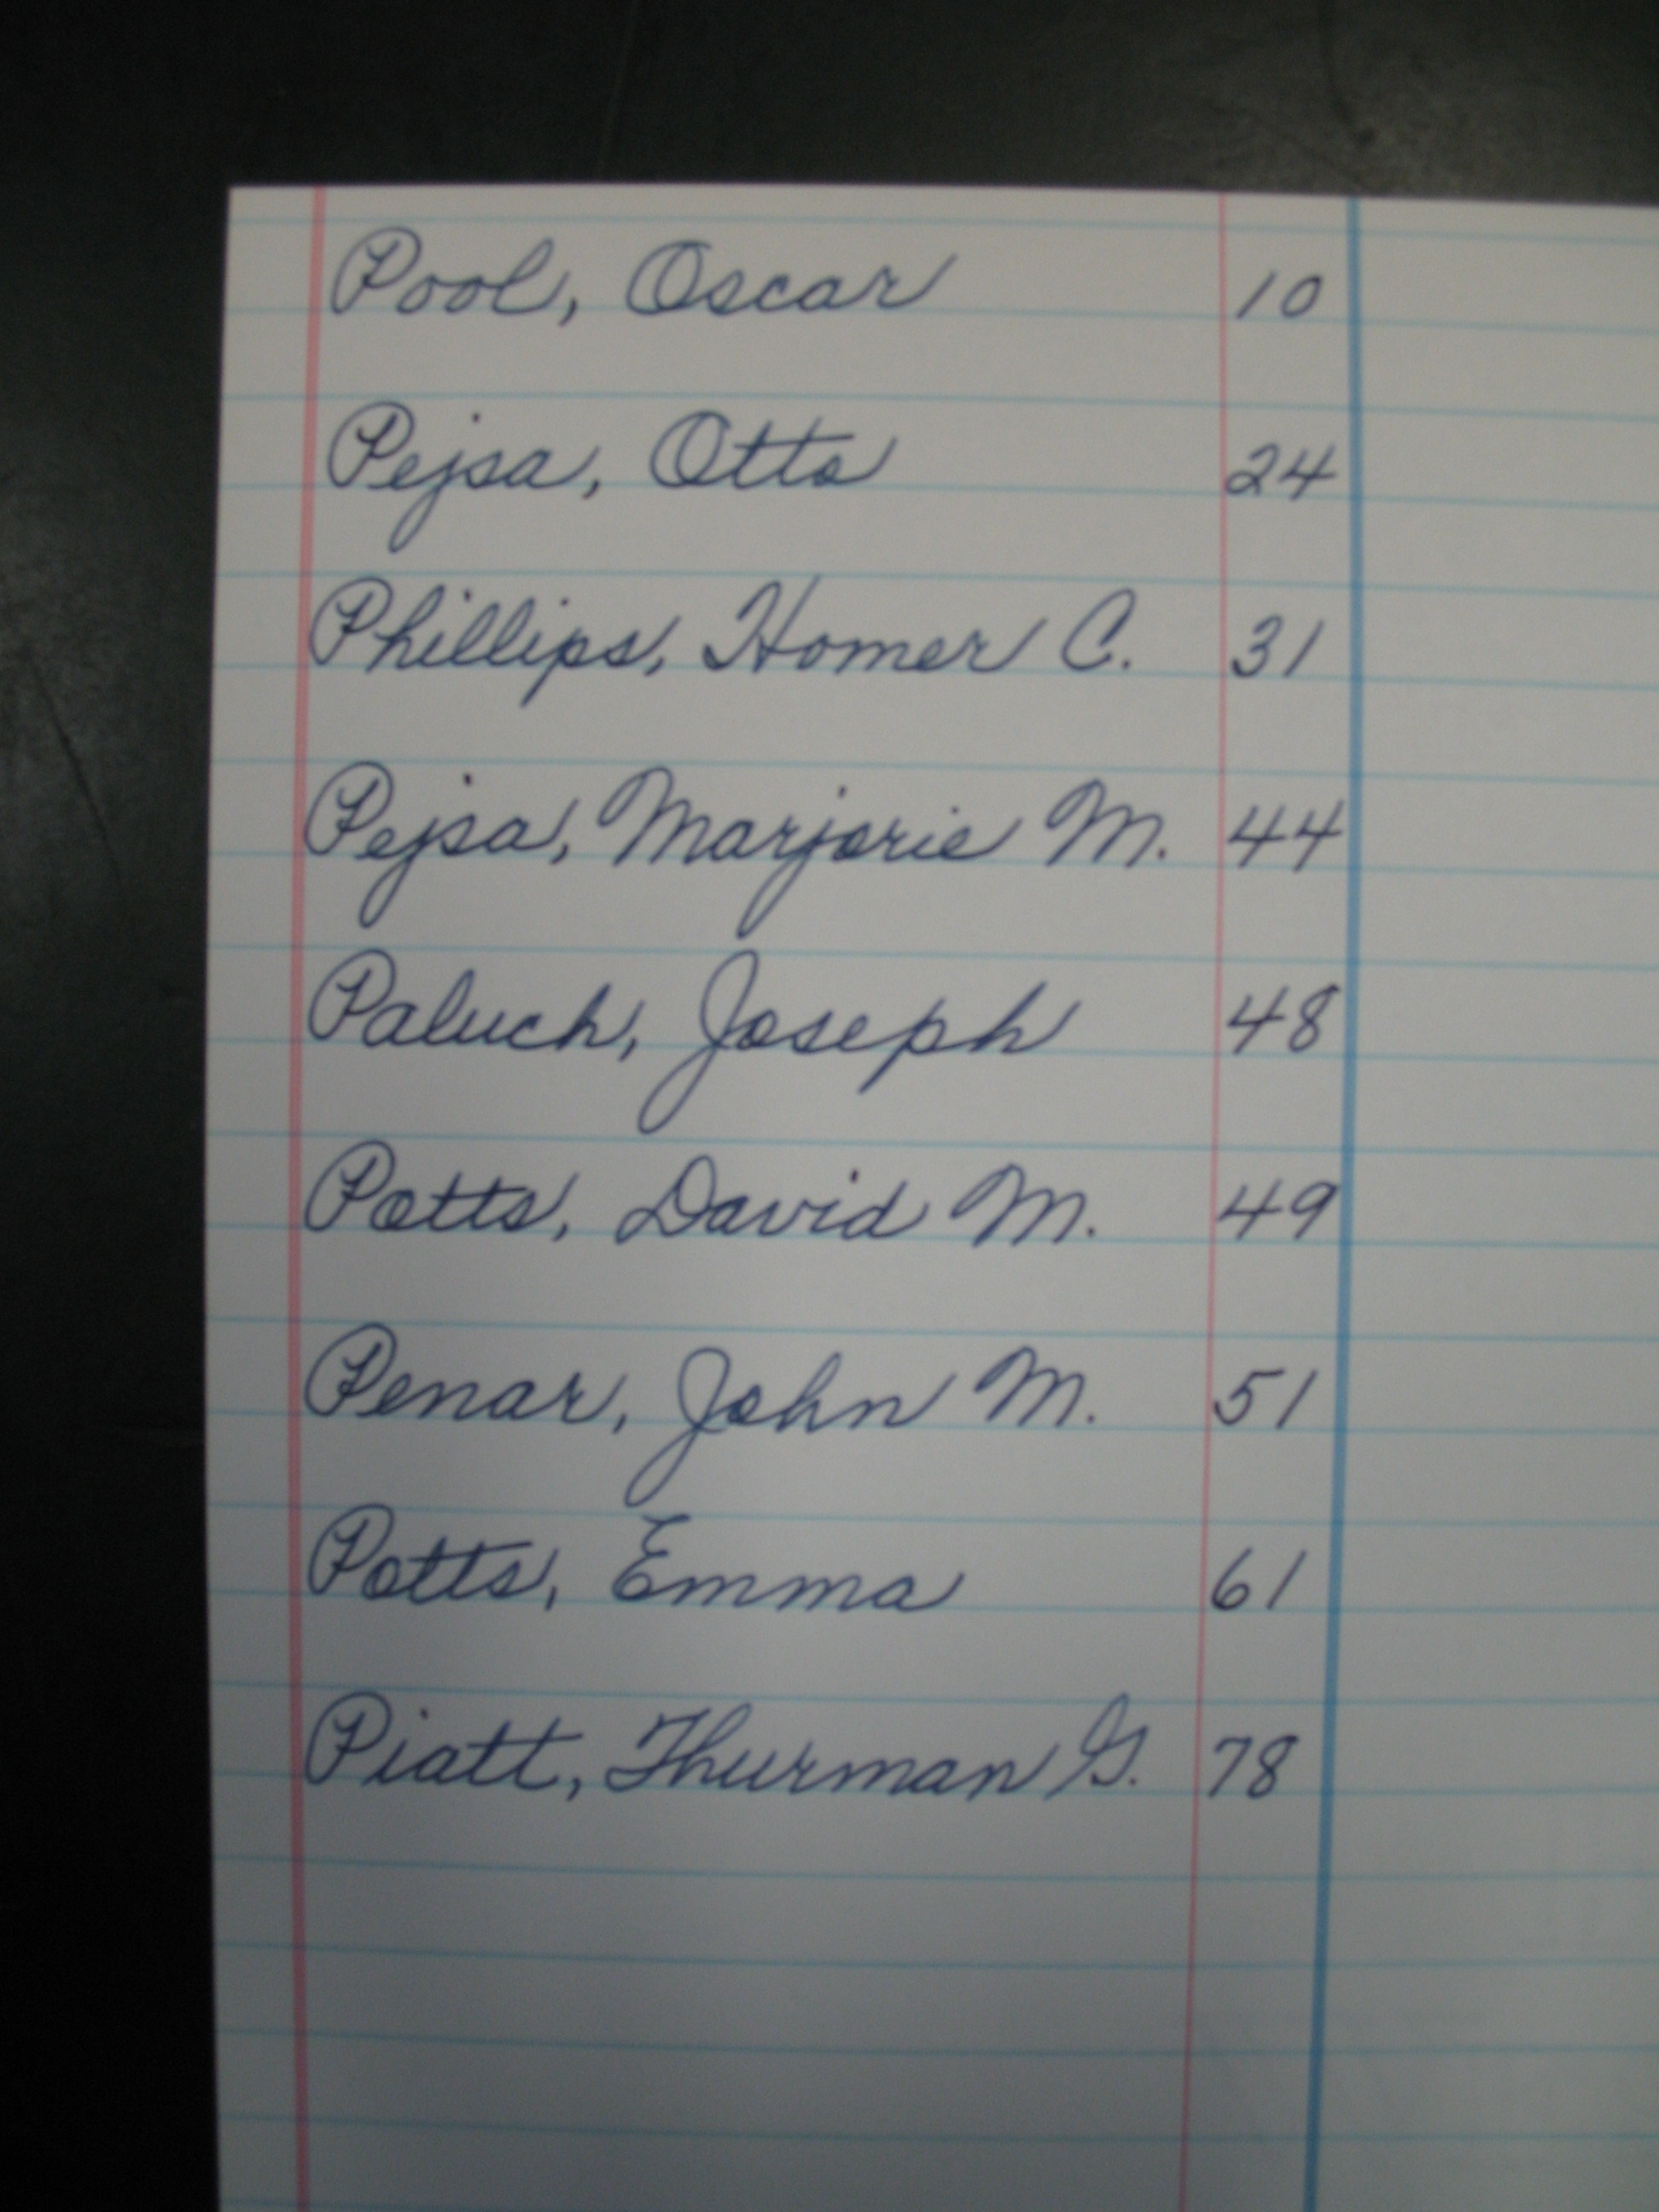 Pool, Oscar 10
Pejsa, Otto 24
Phillips, Homer C. 31
Pejsa, Marjorie M. 44
Paluch, Joseph 48
Potts, David M. 49
Penar, John M. 51
Potts, Emma 61
Piatt, Thurman G. 78